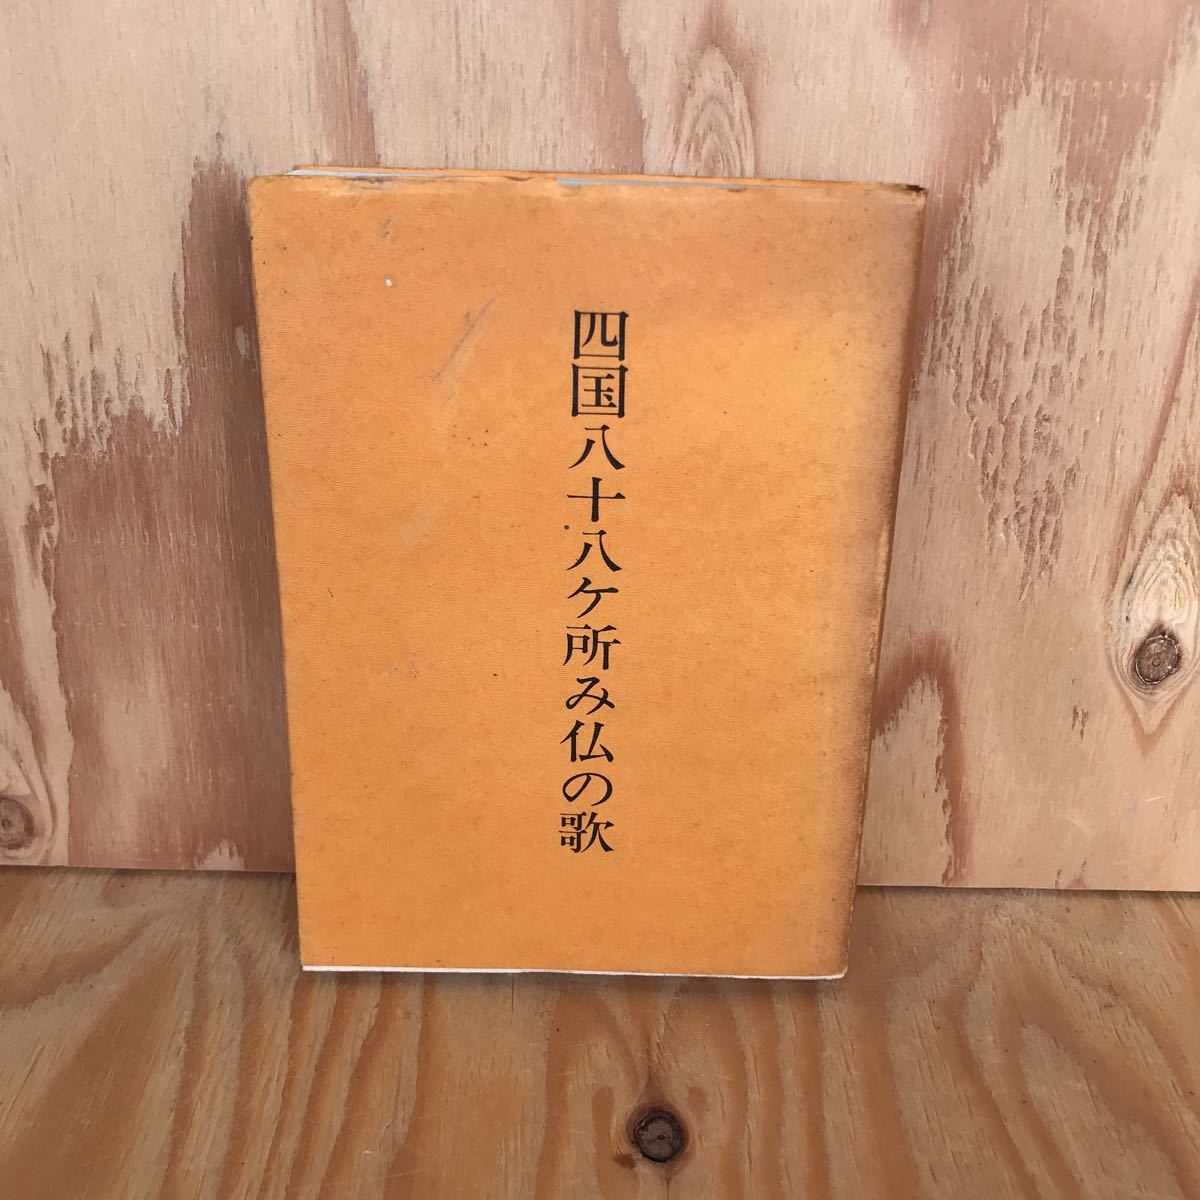 四国八十八ケ所み仏の歌